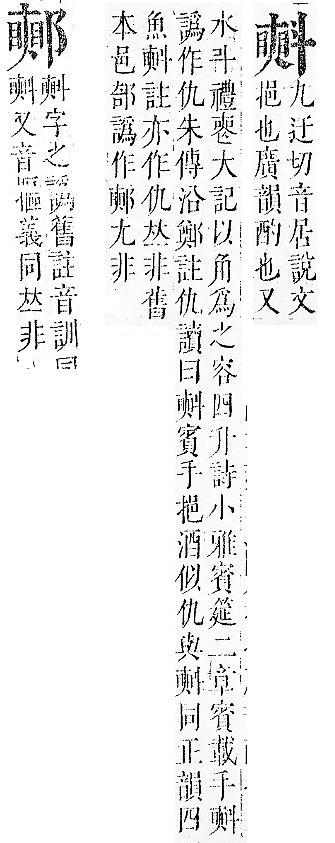 㪺
九迂切音居說文
挹也廣韻酌也又
水斗禮喪大記以角爲之容四升詩小雅賓筵二章賓載手㪺
譌作仇朱傳沿鄭註仇讀曰㪺賓手挹酒似仇與㪺同正韻四
魚㪺註亦作仇𠀤非舊
本邑部譌作尤非
㪺字之譌舊註音訓同
㪺又音義同𠀤非